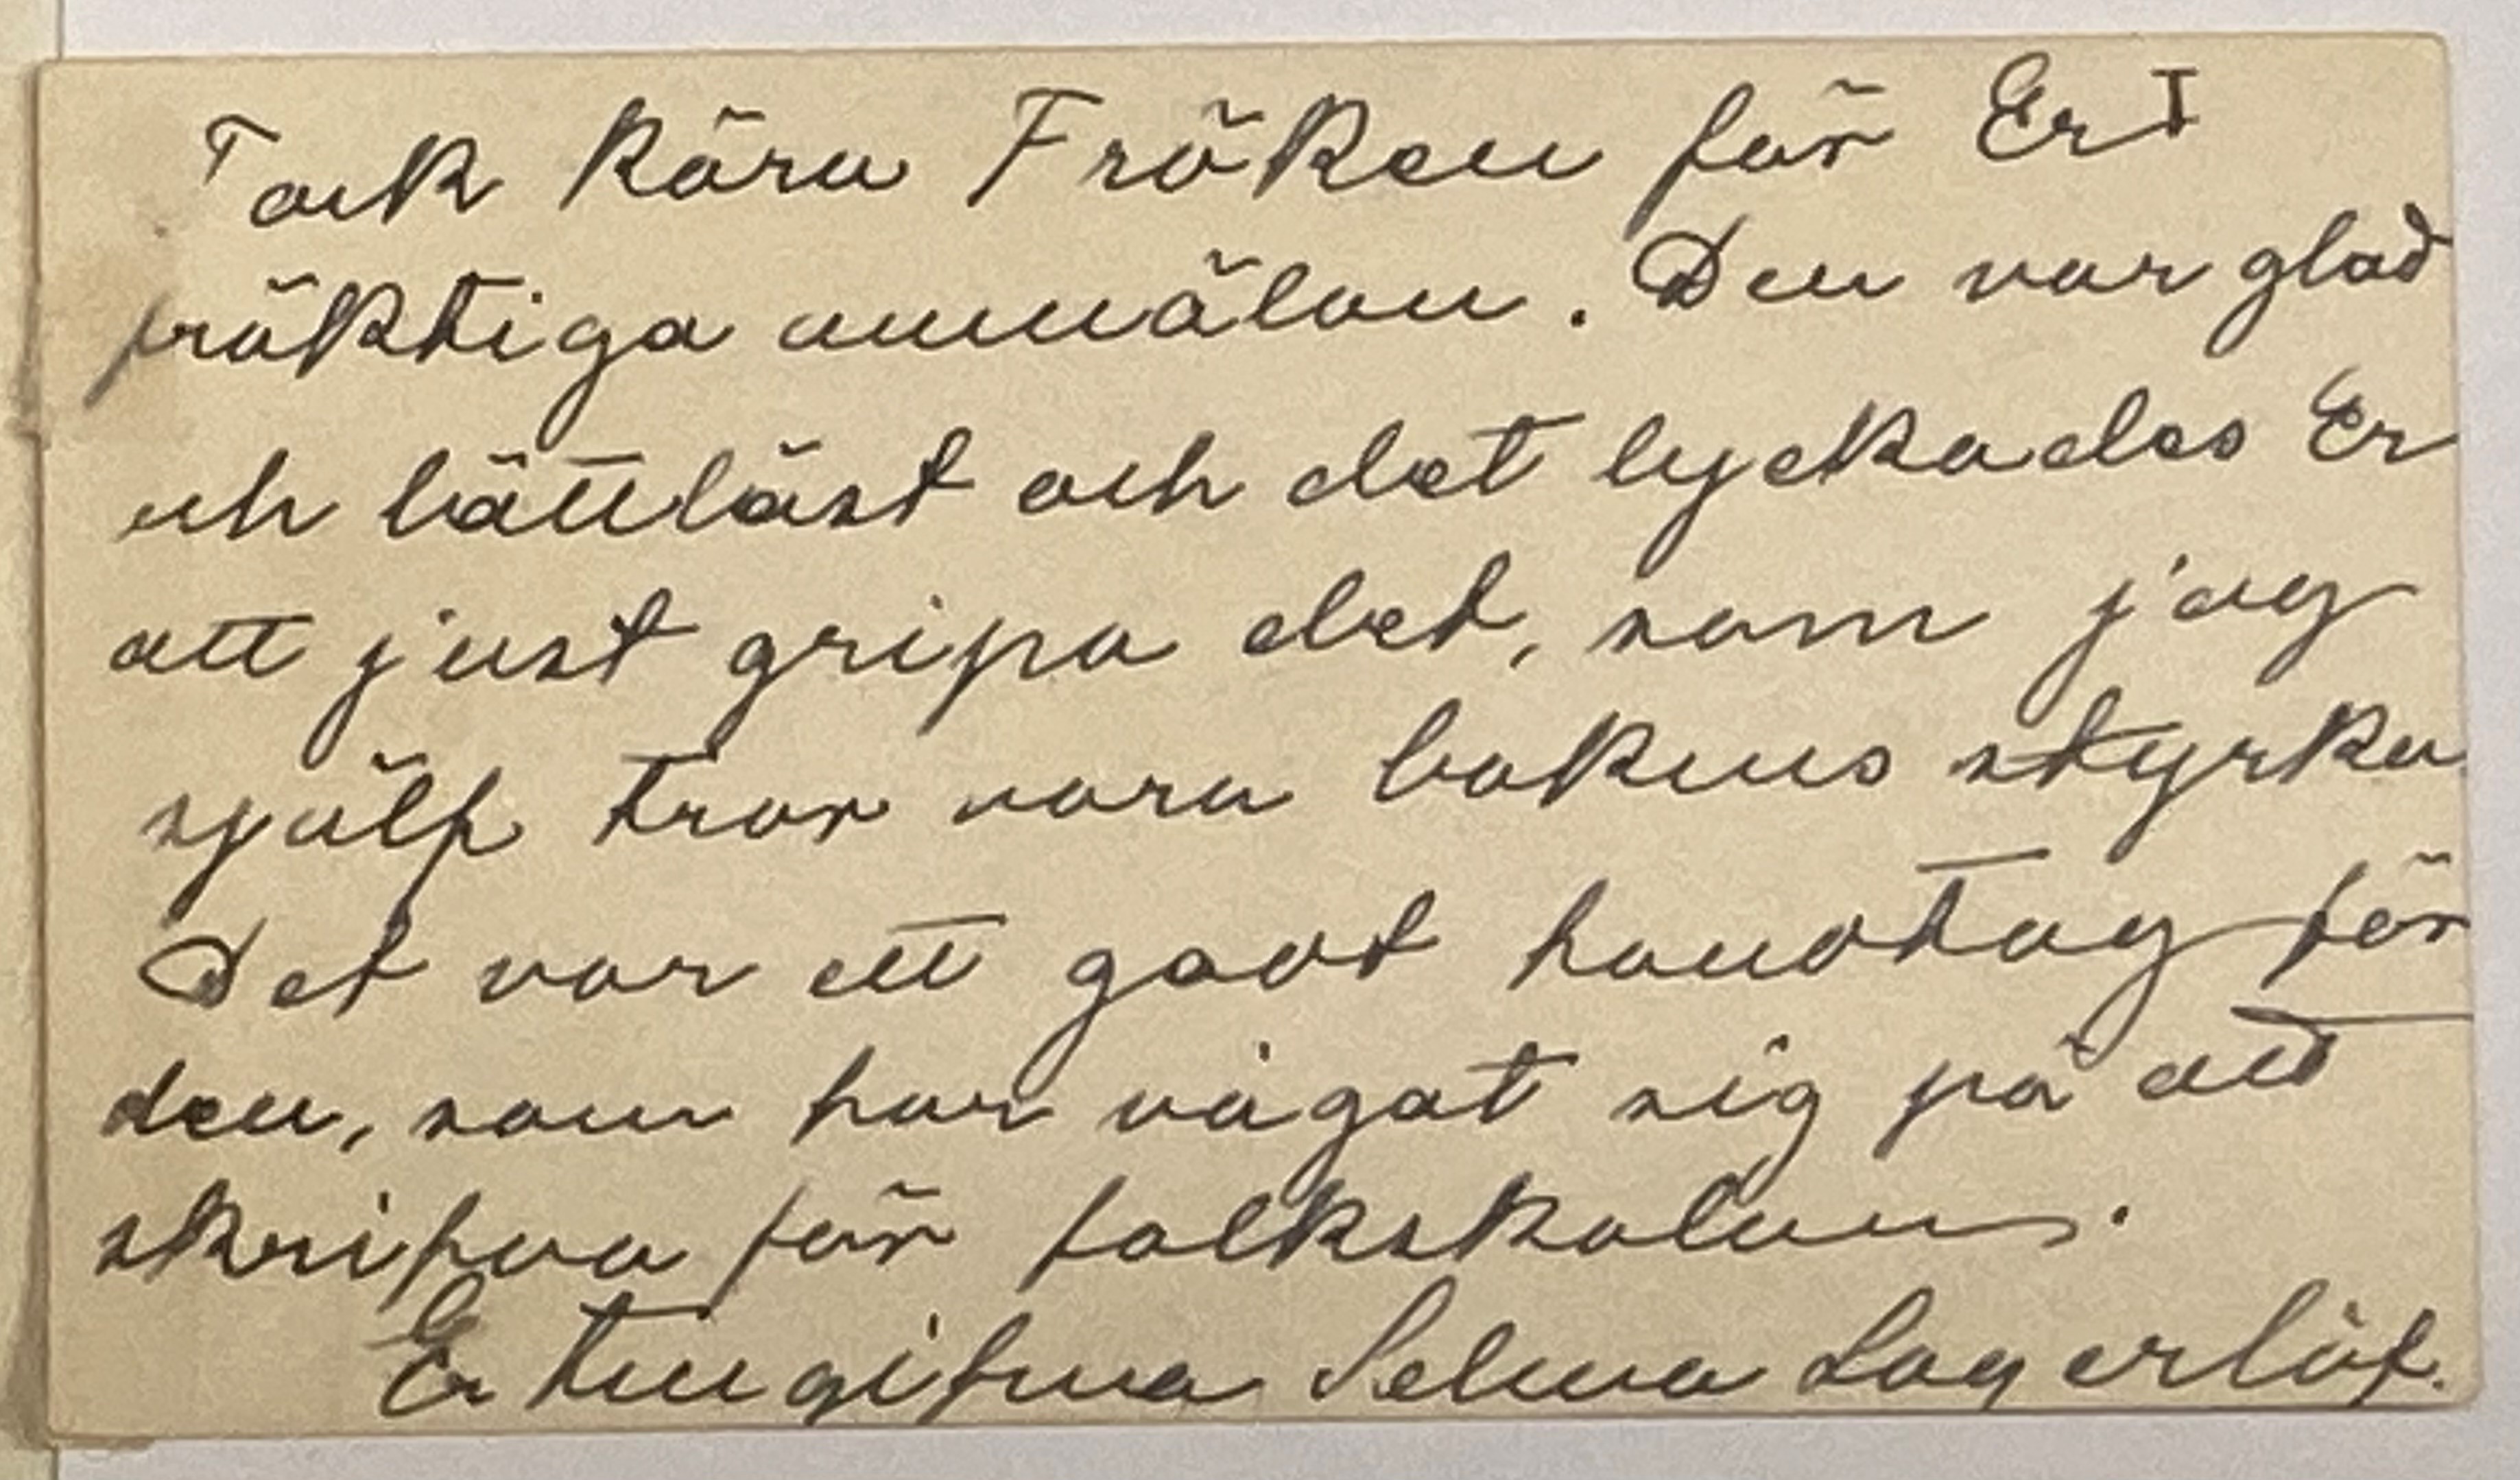 Tack kära Fröken för Ert
präktiga anmälan. Den var glad
och lättläst och det lyckades Er
att just gripa det, som jag
sjalf tror vara bokens styrka
Det var ett godt handtag för
den, som har vågat sig på att
skrifva för folkskolan.
Er tillgifna Selma Lagerlöf.